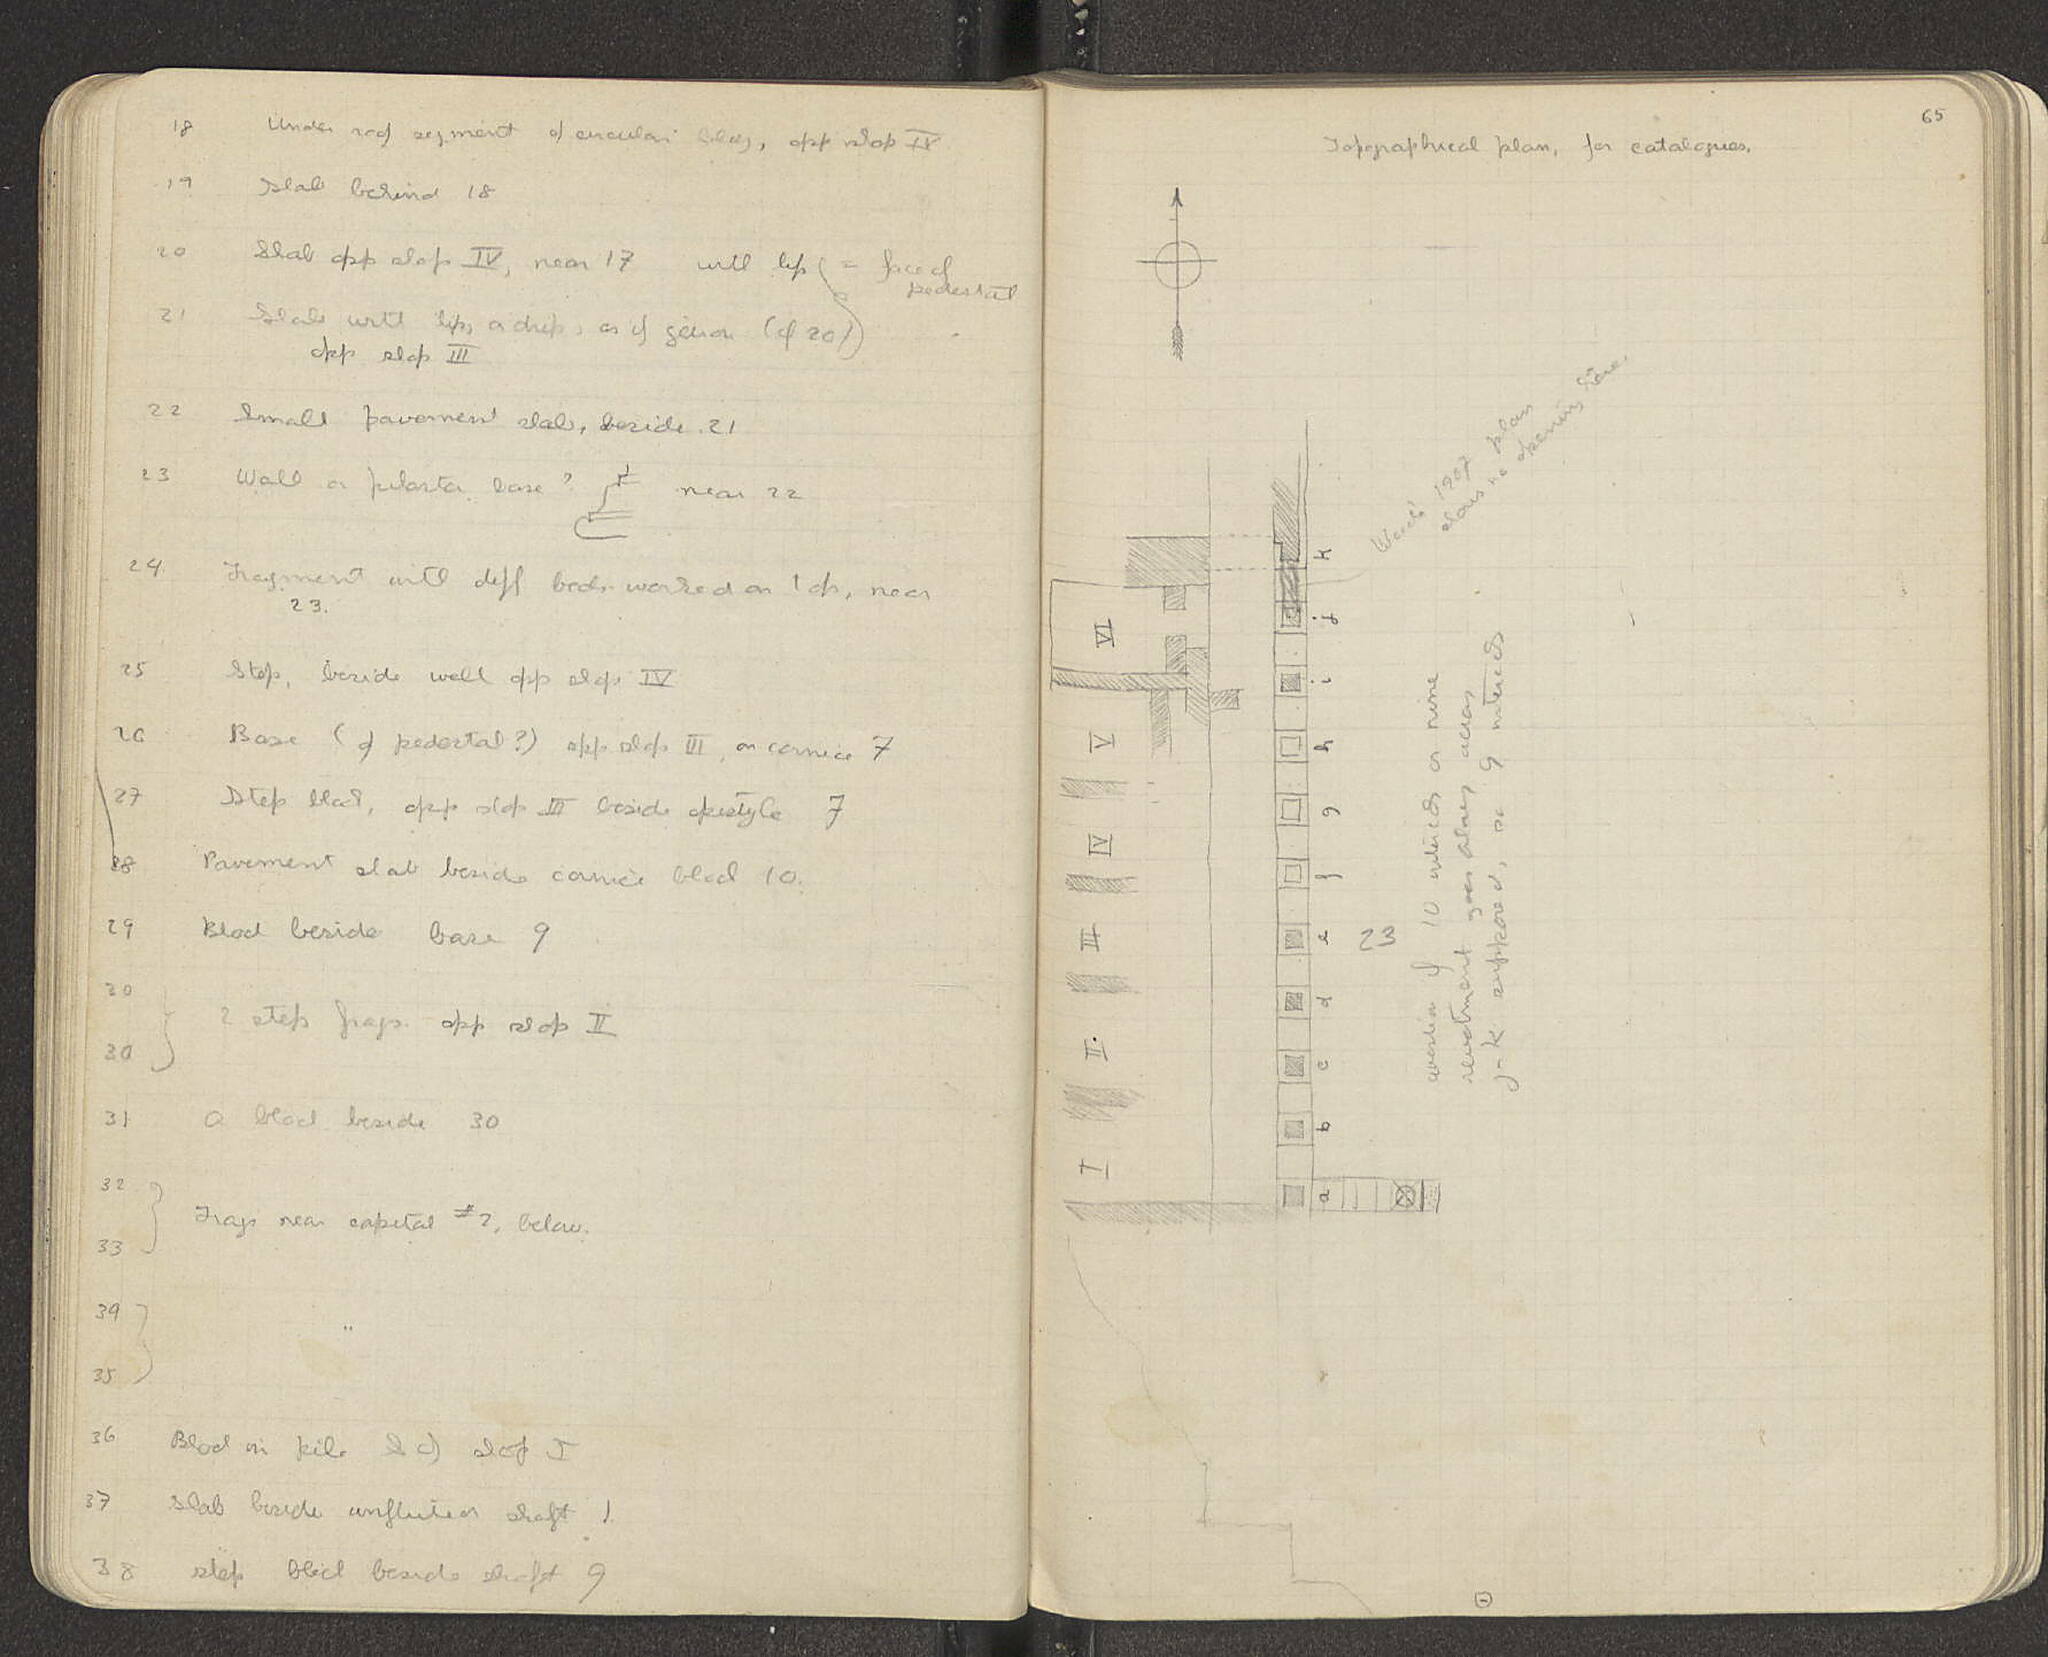 18 Under roof segment of circular bldg, opp shop IV
19 Slab behind 18
20 Slab opp shop IV, near 17 with lip = face of
pedestal
21 Slab with lip, a drip, as if geison (cf 20)
opp shop III
22 Small pavement slab, beside 21
23 Wall or pilaster base? near 22
24 Fragment with diff beds worked on top, near
23.
25 Step, beside well opp shop IV
26 Base (of pedestal?) opp shop III, on cornice 7
27 Step block, opp shop III beside epistyle 7
28 Pavement slab beside cornice block 10.
29 Block beside base 9
30
2 step frags. opp shop II
30
31 a block beside 30
32
Frags near capital #2, below.
33
34
"
35
36 Block in pile S of shop I
37 Slab beside unfluted shaft 1
38 step block beside shaft 9
65
Topographical plan, for catalogues.
1907 plan
shows no opening here.
VI
V
IV
III
II
I
k
j
i
h
g
f
e
d
c
b
a
23
question if 10 intercols or nine
revetment goes along across
j-k supposed, so 9 intercols
1